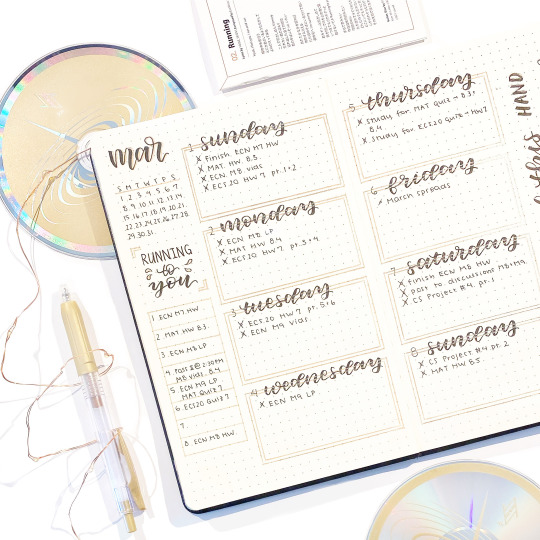 02. Running
mar
S M T W T F S
1 2 3 4 5 6 7
8 9 10 11 12 13 14
15 16 17 18 19 20 21
22 23 24 25 26 27 28
29 30 31
RUNNING
to
you
1 ECN M7 HW
2 MAT HW 8.3
3 ECN M8 LP
4 Pass @ 2:30PM
M8 vids. 8.4
5 ECN M9 LP
MAT Quiz 7
6 ECS20 Quiz 7
7.
8 ECN M8 HW
1 sunday
x Finish ECN M7 HW
x MAT HW 8.3
x ECN M8 vids
x ECS20 HW 7 pt. 1+2
2 monday
x ECN M8 LP
x MAT HW 8.4
x ECS20 HW 7 pt. 3+4
3 tuesday
x ECS20 HW 7 pt. 5+6
x ECN M9 vids
4 wednesday
x ECN M9 LP
5 thursday
x Study for MAT Quiz → 8.3+
8.4
x Study for ECS20 Quiz → HW7
6 friday
x March spreads
7 saturday
x Finish ECN M8 HW
x Post to discussions M8+M9
x CS Project #4 pt. 1
8 sunday
x CS Project #4 pt. 2
x MAT HW 8.5
this HAND